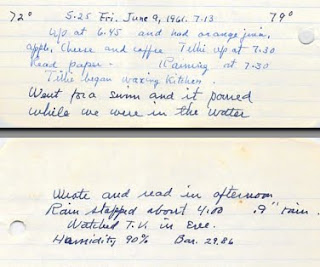 72° 5.25 Fri. June 9, 1961. 7.13 79°
Up at 6.45 and had orange juice,
apple, cheese and coffee Tillie up at 7.30
Read paper - Raining at 7.30
Tillie began waxing kitchen.
Went for a swim and it poured
while we were in the water
Wrote and read in afternoon
Rain stopped about 4.00 .9" rain.
Watched T.V. in Eve.
Humidity 90% Bar. 29.86